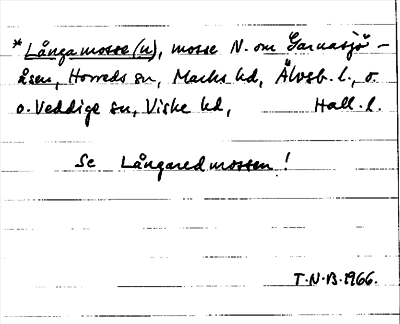 *Långamosse(n), mosse N. om Garnasjö-
åsen, Horreds sn, Marks hd, Älvsb. l., o.
o. Veddige sn, Viske hd, Hall. l.
Se Långaredmossen!
T.N.B. 1966.